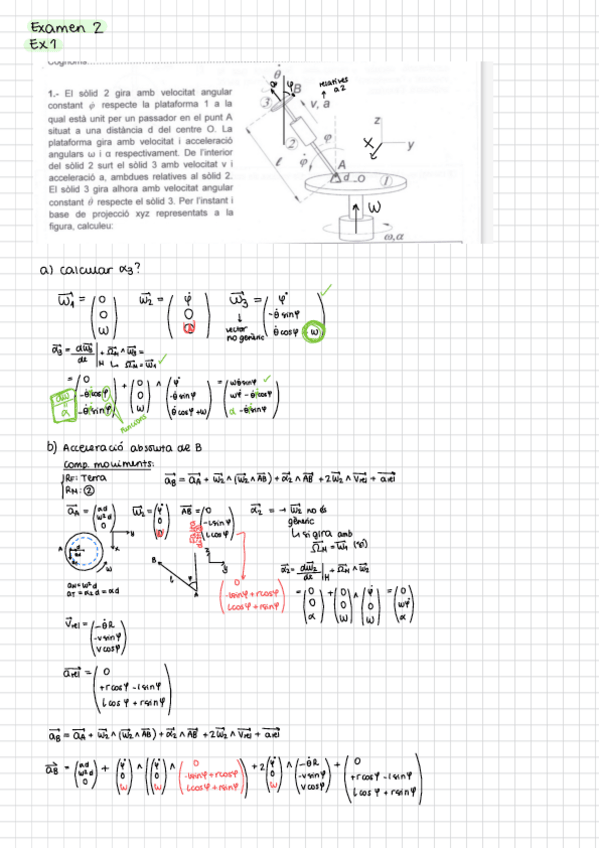 Examen 2
Ex1
1.- El sòlid 2 gira amb velocitat angular
constant φ̇ respecte la plataforma 1 a la
qual està unit per un passador en el punt A
situat a una distància d del centre O. La
plataforma gira amb velocitat i acceleració
angulars ω i α respectivament. De l'interior
del sòlid 2 surt el sòlid 3 amb velocitat v i
acceleració a, ambdues relatives al sòlid 2.
El sòlid 3 gira alhora amb velocitat angular
constant θ̇ respecte el sòlid 3. Per l'instant i
base de projecció xyz representats a la
figura, calculeu:
θ̇
φ
B
relatives
a 2
3
v, a
z
x
y
2
φ
l
φ̇
A
d
O
1
W
ω,α
a) calcular α3?
ω1 = (0 0 ω) ω2 = (φ̇ 0 ω) ω3 = (φ̇ -θ̇ sinφ θ̇ cosφ + ω)
vector
no genèric
α3 = dω3/dt |M + ΩM ∧ ω3 =
↳ ΩM = ω1
= (0 -θ̇φ̇cosφ α-θ̇φ̇sinφ) + (0 0 ω) ∧ (φ̇ -θ̇sinφ θ̇cosφ+ω) = (ωθ̇sinφ ωφ̇-θ̇φ̇cosφ α-θ̇φ̇sinφ)
funcions
b) Acceleració absoluta de B
Comp. moviments:
RF: Terra
RM: 2
aB = aA + ω2 ∧ (ω2 ∧ AB) + α2 ∧ AB + 2ω2 ∧ Vrel + arel
aA = (αd ω²d 0) ω2 = (φ̇ 0 ω) AB = (0 -lsinφ lcosφ) α2 = → ω2 no és
genèric
↳ si gira amb
ΩM = ω1
(0 -lsinφ+rcosφ lcosφ+rsinφ)
B
l
φ
A
aN = ω²d
aT = α2d = αd
α2 = dω2/dt |M + ΩM ∧ ω2
= (0 0 α) + (0 0 ω) ∧ (φ̇ 0 ω) = (0 ωφ̇ α)
Vrel = (-θ̇R -vsinφ vcosφ)
arel = (0 +rcosφ-lsinφ lcosφ+rsinφ)
aB = aA + ω2 ∧ (ω2 ∧ AB) + α2 ∧ AB + 2ω2 ∧ Vrel + arel
aB = (αd ω²d 0) + (φ̇ 0 ω) ∧ ((φ̇ 0 ω) ∧ (0 -lsinφ+rcosφ lcosφ+rsinφ)) + 2(φ̇ 0 ω) ∧ (-θ̇R -vsinφ vcosφ) + (0 +rcosφ-lsinφ lcosφ+rsinφ)